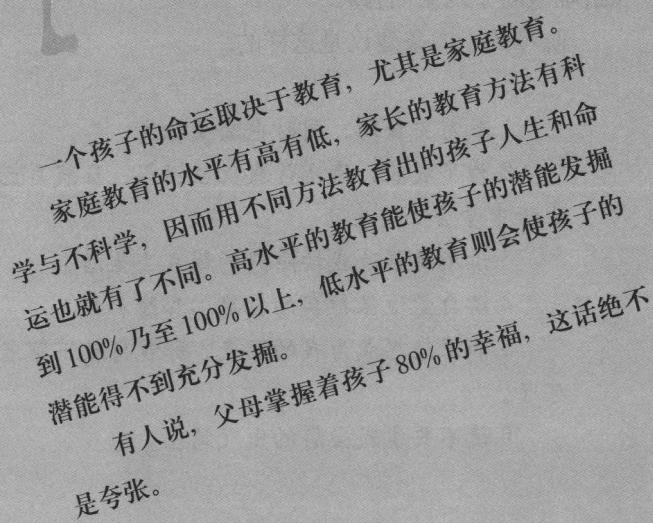 一个孩子的命运取决于教育，尤其是家庭教育。
家庭教育的水平有高有低，家长的教育方法有科
学与不科学，因而用不同方法教育出的孩子人生和命
运也就有了不同。高水平的教育能使孩子的潜能发掘
到100%乃至100%以上，低水平的教育则会使孩子的
潜能得不到充分发掘。
有人说，父母掌握着孩子80%的幸福，这话绝不
是夸张。